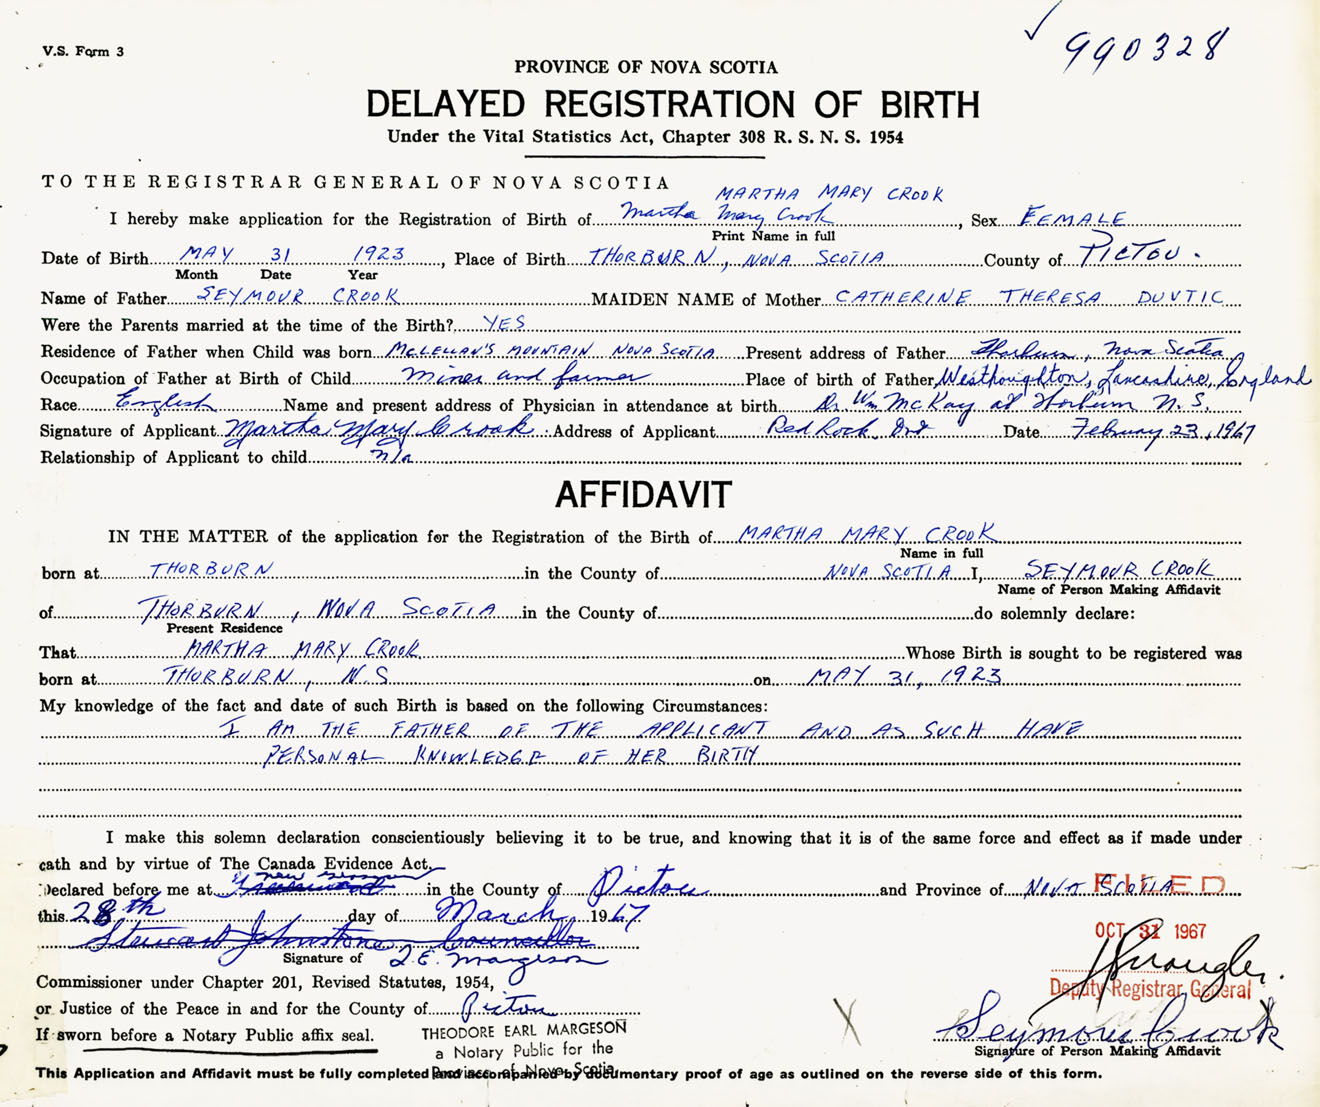 V.S. Form 3
990328
PROVINCE OF NOVA SCOTIA
DELAYED REGISTRATION OF BIRTH
Under the Vital Statistics Act, Chapter 308 R. S. N. S. 1954
TO THE REGISTRAR GENERAL OF NOVA SCOTIA
MARTHA MARY CROOK
I hereby make application for the Registration of Birth of Martha Mary Crook, Sex FEMALE
Print Name in full
Date of Birth MAY 31 1923, Place of Birth THORBURN, NOVA SCOTIA County of PICTOU.
Month Date Year
Name of Father SEYMOUR CROOK MAIDEN NAME of Mother CATHERINE THERESA DUVTIC
Were the Parents married at the time of the Birth? YES
Residence of Father when Child was born McLELLAN'S MOUNTAIN NOVA SCOTIA Present address of Father Thorburn, Nova Scotia
Occupation of Father at Birth of Child miner and farmer Place of birth of Father Westhoughton, Lancashire, England
Race English Name and present address of Physician in attendance at birth Dr. Wm McKay at Thorburn N.S.
Signature of Applicant Martha Mary Crook Address of Applicant Red Rock, Ont Date February 23, 1967
Relationship of Applicant to child n/a
AFFIDAVIT
IN THE MATTER of the application for the Registration of the Birth of MARTHA MARY CROOK
Name in full
born at THORBURN in the County of NOVA SCOTIA I, SEYMOUR CROOK
Name of Person Making Affidavit
of THORBURN, NOVA SCOTIA in the County of do solemnly declare:
Present Residence
That MARTHA MARY CROOK Whose Birth is sought to be registered was
born at THORBURN, N.S on MAY 31, 1923
My knowledge of the fact and date of such Birth is based on the following Circumstances:
I AM THE FATHER OF THE APPLICANT AND AS SUCH HAVE
PERSONAL KNOWLEDGE OF HER BIRTH
I make this solemn declaration conscientiously believing it to be true, and knowing that it is of the same force and effect as if made under
oath and by virtue of The Canada Evidence Act.
Declared before me at New Glasgow in the County of Pictou and Province of NOVA SCOTIA
FILED
this 28th day of March 1967
OCT 31 1967
Stewart Johnstone Councillor
Signature of T.E. Margeson
Deputy Registrar General
Commissioner under Chapter 201, Revised Statutes, 1954,
or Justice of the Peace in and for the County of Pictou
Seymour Crook
If sworn before a Notary Public affix seal.
THEODORE EARL MARGESON
a Notary Public for the
Province of Nova Scotia
Signature of Person Making Affidavit
This Application and Affidavit must be fully completed and accompanied by documentary proof of age as outlined on the reverse side of this form.